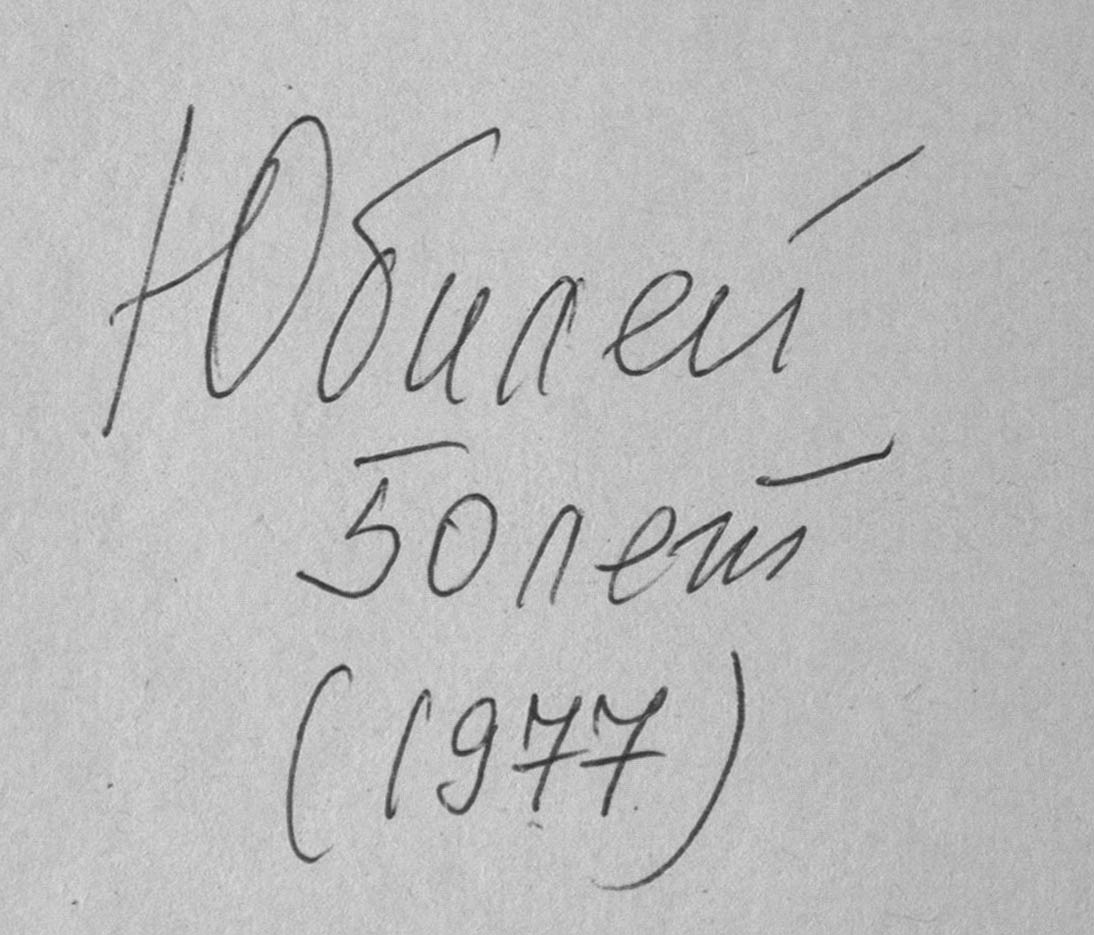 Юбилей
50 лет
(1977)